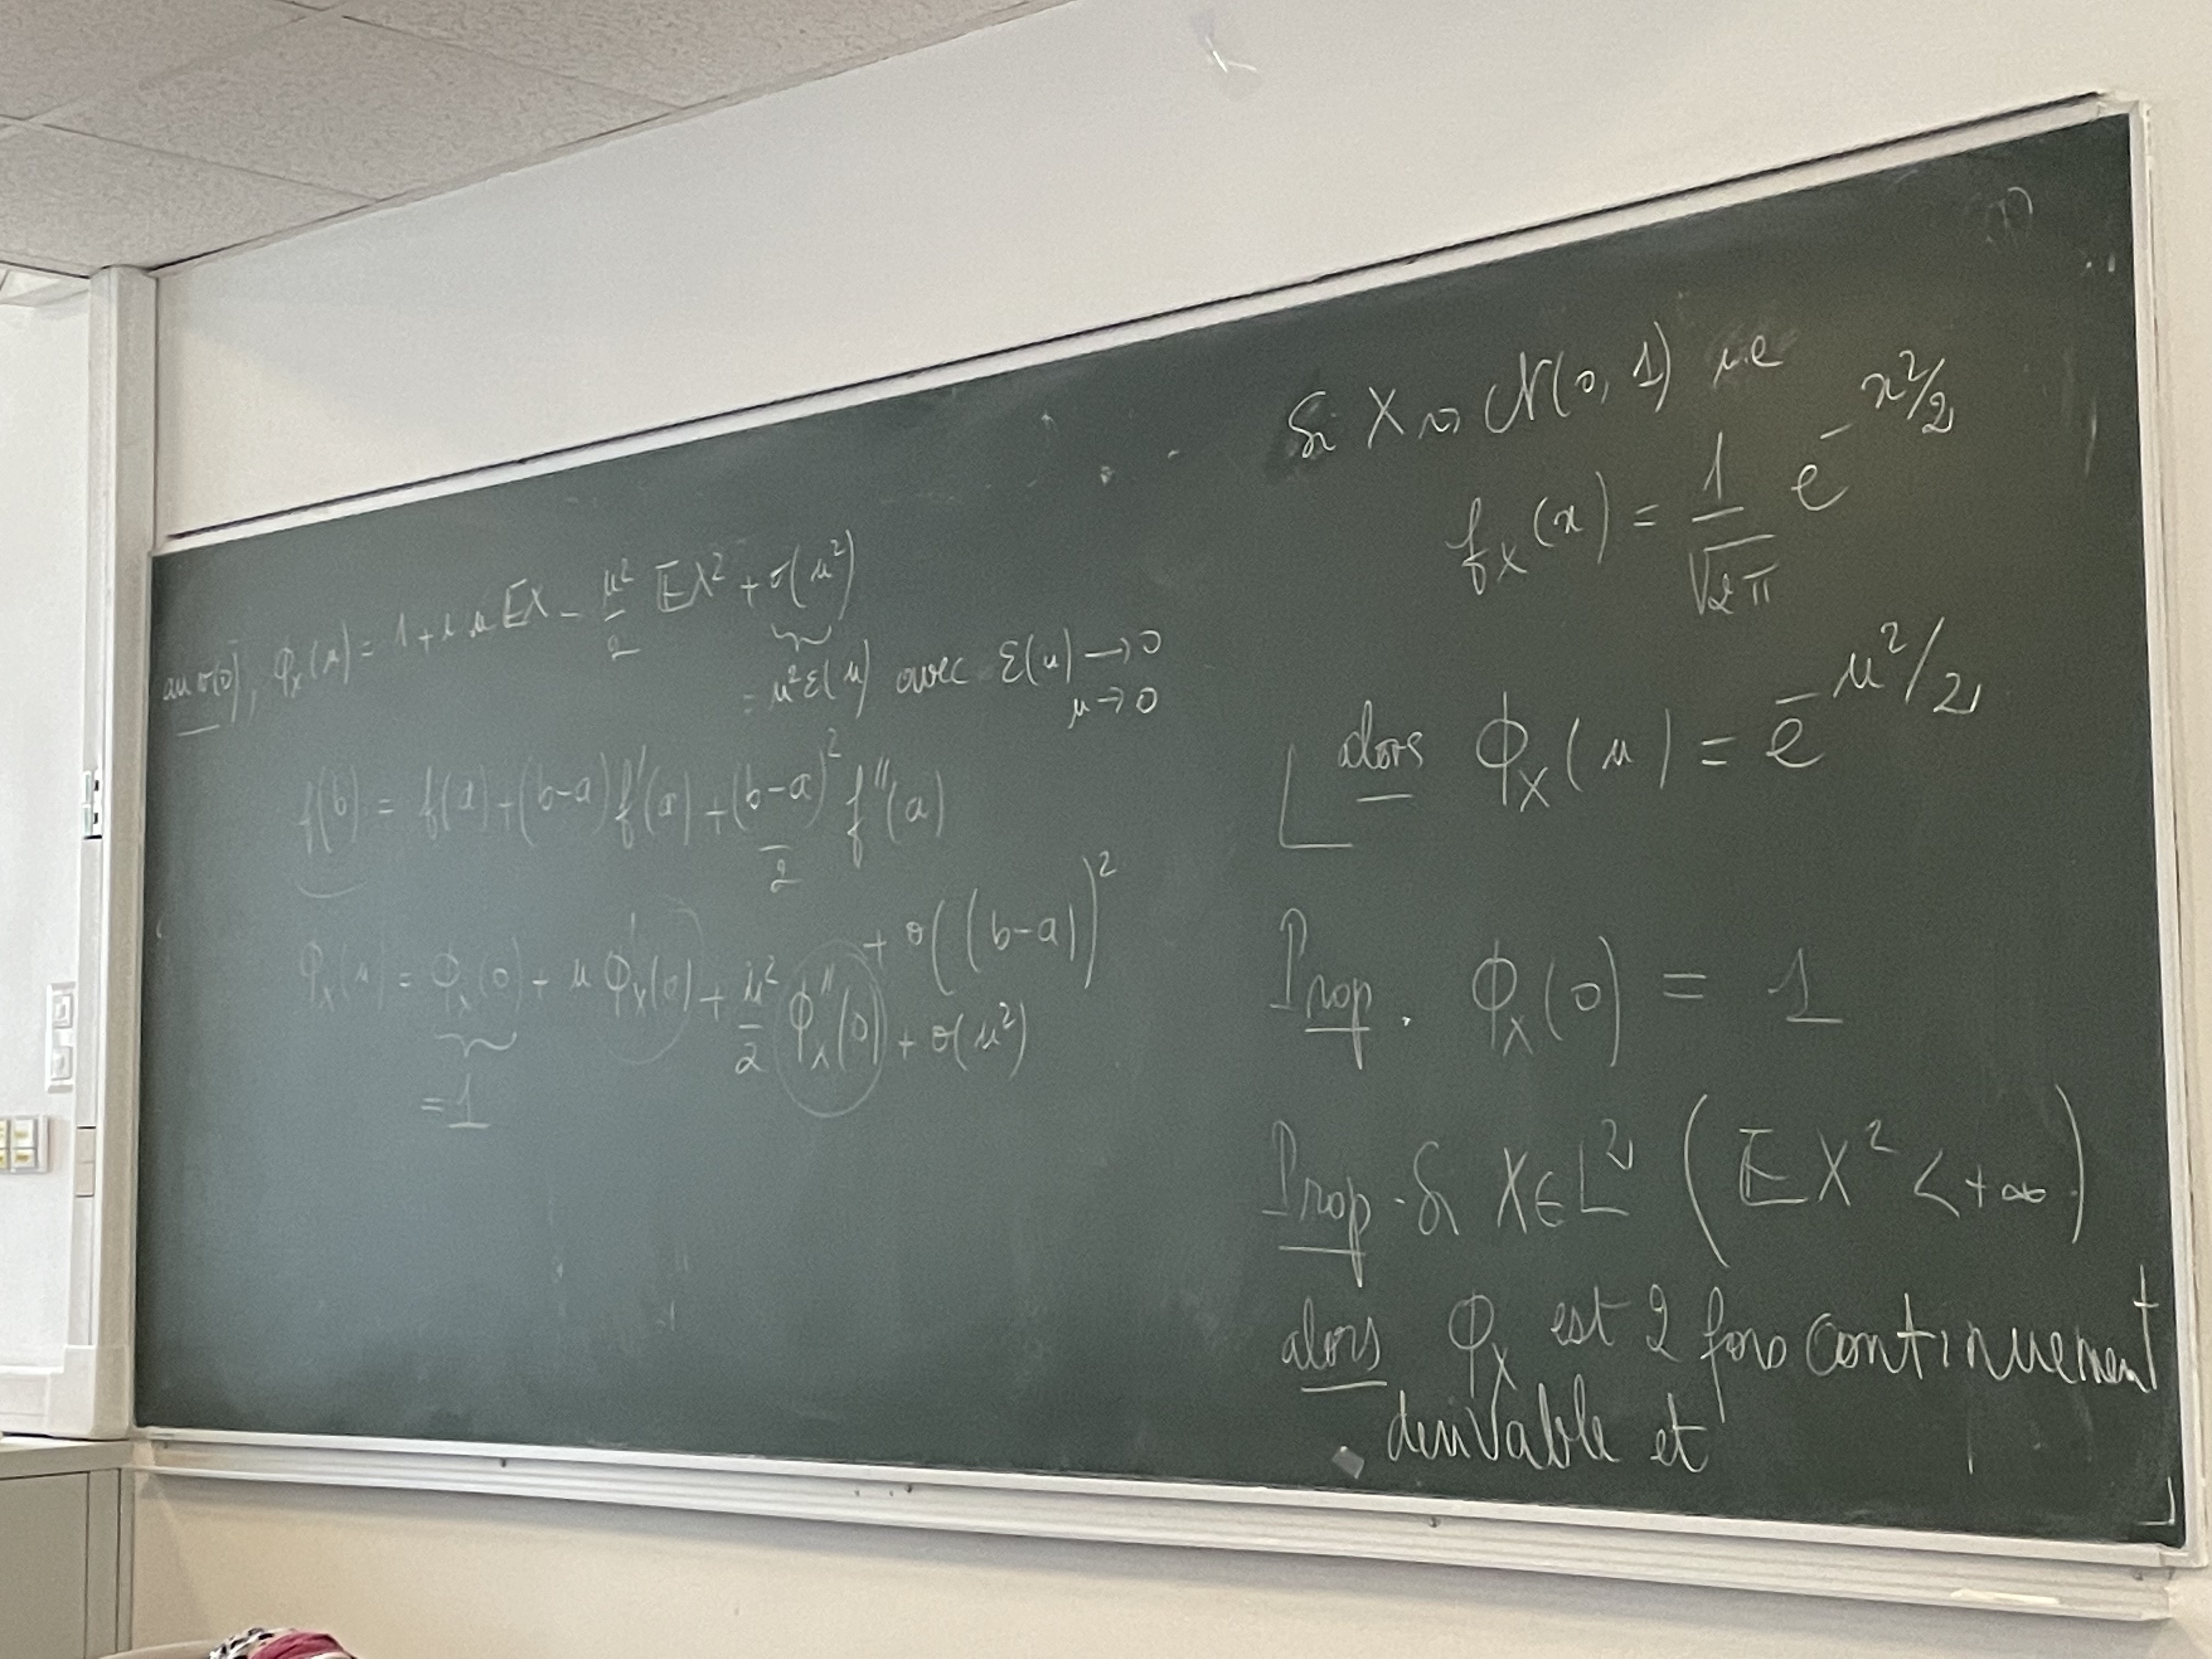 au v(0), φ_X(u) = 1 + i u EX - u²/2 EX² + o(u²)
= u²ε(u) avec ε(u) → 0
u → 0
f(b) = f(a) + (b-a) f'(a) + (b-a)²/2 f''(a)
+ o((b-a))²
φ_X(u) = φ_X(0) + u φ'_X(0) + u²/2 φ''_X(0) + o(u²)
= 1
Si X ~> N(0, 1) i.e
f_X(x) = 1/√2π e^-x²/2
alors φ_X(u) = e^-u²/2
Prop. φ_X(0) = 1
Prop. Si X ∈ L² (EX² < +∞)
alors φ_X est 2 fois continuement
derivable et